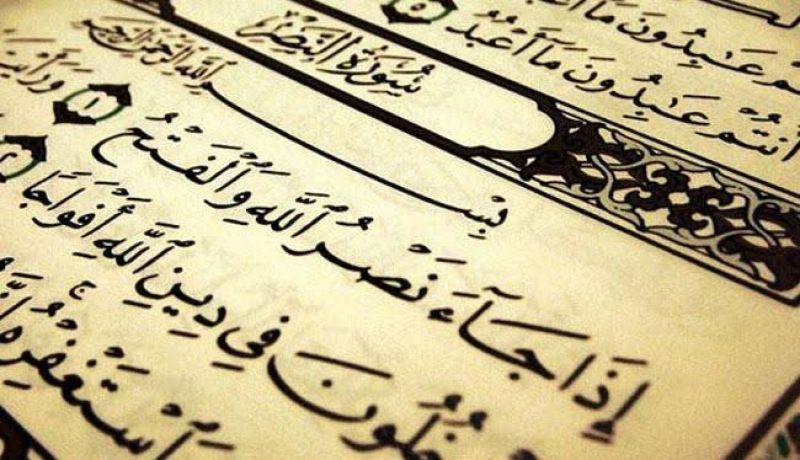 عَـٰبِدُونَ مَآ أَعْبُدُ
أَنتُمْ عَـٰبِدُونَ مَآ أَعْبُدُ ٥
سُورَةُ النَّصْرِ
بِسْمِ ٱللَّهِ ٱلرَّحْمَـٰنِ ٱلرَّحِيمِ
إِذَا جَآءَ نَصْرُ ٱللَّهِ وَٱلْفَتْحُ ١ وَرَأَيْتَ
فِى دِينِ ٱللَّهِ أَفْوَاجًا ٢
وَٱسْتَغْفِرْهُ